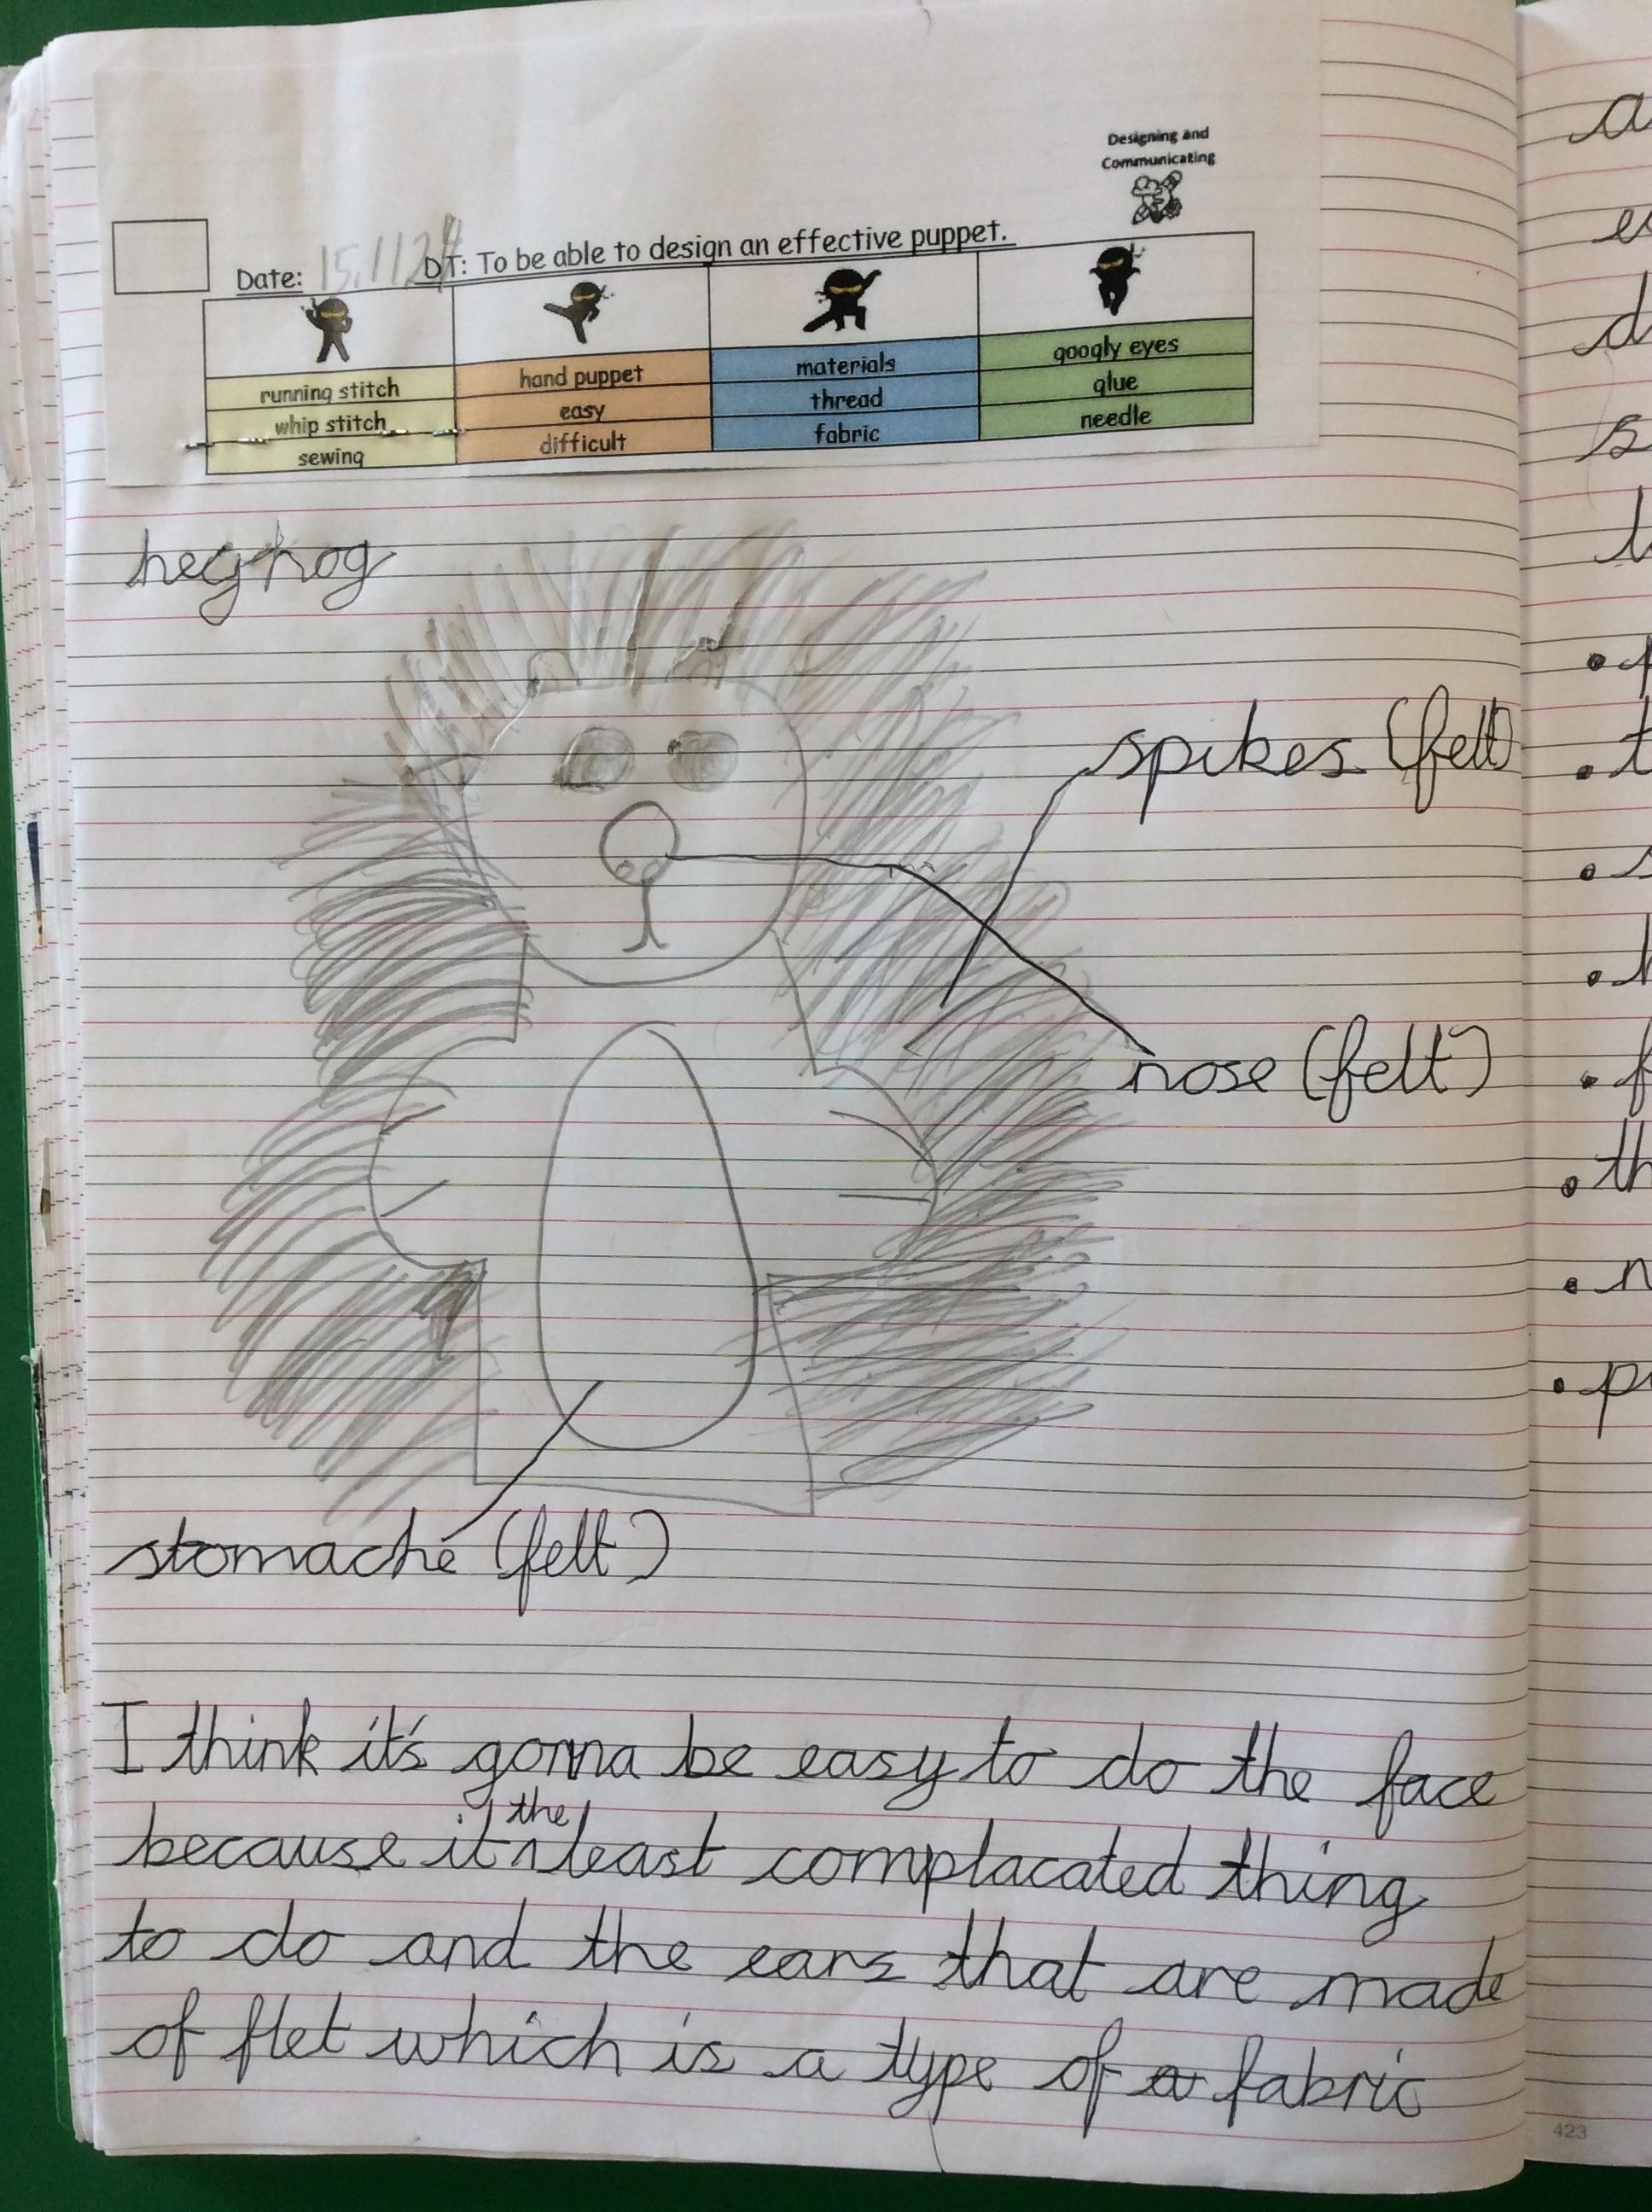 Designing and
Communicating
Date: 15.11.24 DT: To be able to design an effective puppet.
running stitch
whip stitch
sewing
hand puppet
easy
difficult
materials
thread
fabric
googly eyes
glue
needle
heghog
spikes (felt)
nose (felt)
stomache (felt)
I think it's gonna be easy to do the face
because it ^the least complacated thing
to do and the ears that are made
of flet which is a type of a fabric
423